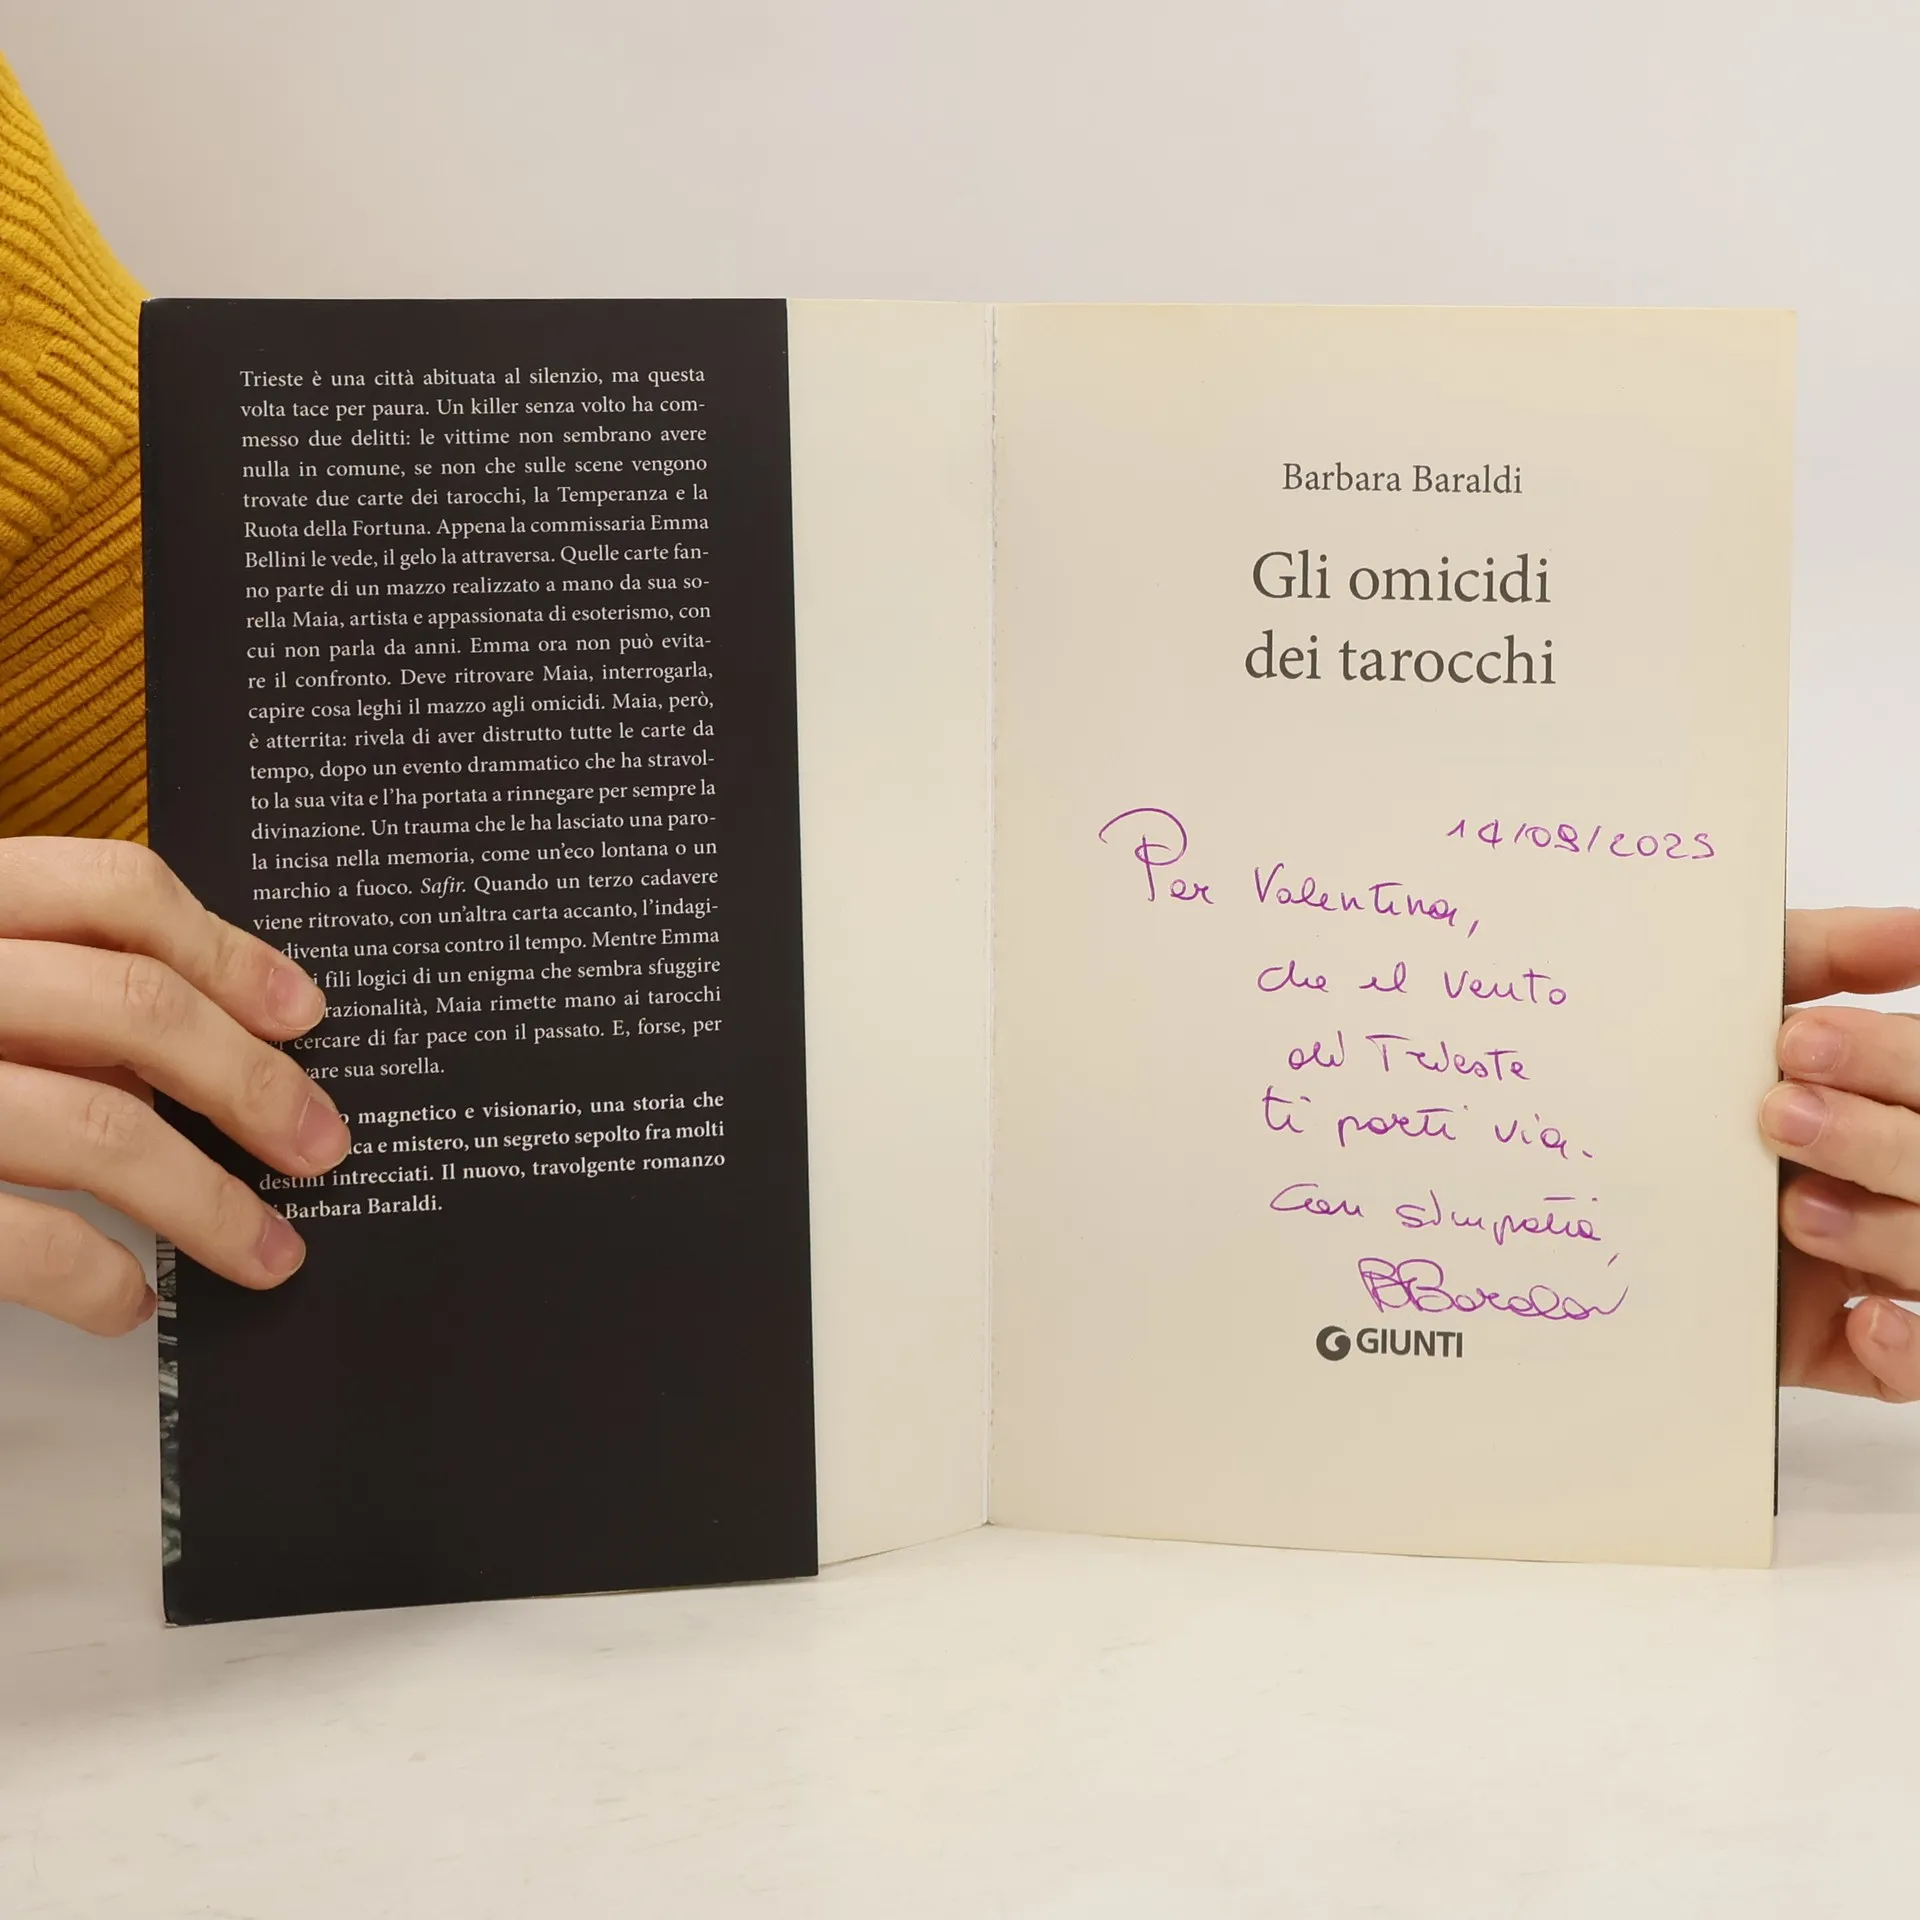 Trieste è una città abituata al silenzio, ma questa
volta tace per paura. Un killer senza volto ha com-
messo due delitti: le vittime non sembrano avere
nulla in comune, se non che sulle scene vengono
trovate due carte dei tarocchi, la Temperanza e la
Ruota della Fortuna. Appena la commissaria Emma
Bellini le vede, il gelo la attraversa. Quelle carte fan-
no parte di un mazzo realizzato a mano da sua so-
rella Maia, artista e appassionata di esoterismo, con
cui non parla da anni. Emma ora non può evita-
re il confronto. Deve ritrovare Maia, interrogarla,
capire cosa leghi il mazzo agli omicidi. Maia, però,
è atterrita: rivela di aver distrutto tutte le carte da
tempo, dopo un evento drammatico che ha stravol-
to la sua vita e l'ha portata a rinnegare per sempre la
divinazione. Un trauma che le ha lasciato una paro-
la incisa nella memoria, come un'eco lontana o un
marchio a fuoco. Safir. Quando un terzo cadavere
viene ritrovato, con un'altra carta accanto, l'indagi-
diventa una corsa contro il tempo. Mentre Emma
i fili logici di un enigma che sembra sfuggire
razionalità, Maia rimette mano ai tarocchi
cercare di far pace con il passato. E, forse, per
sua sorella.
magnetico e visionario, una storia che
e mistero, un segreto sepolto fra molti
destini intrecciati. Il nuovo, travolgente romanzo
Barbara Baraldi.
Barbara Baraldi
Gli omicidi
dei tarocchi
14/09/2025
Per Valentina,
che il vento
di Trieste
ti porti via.
Con simpatia,
BBaraldi
GIUNTI